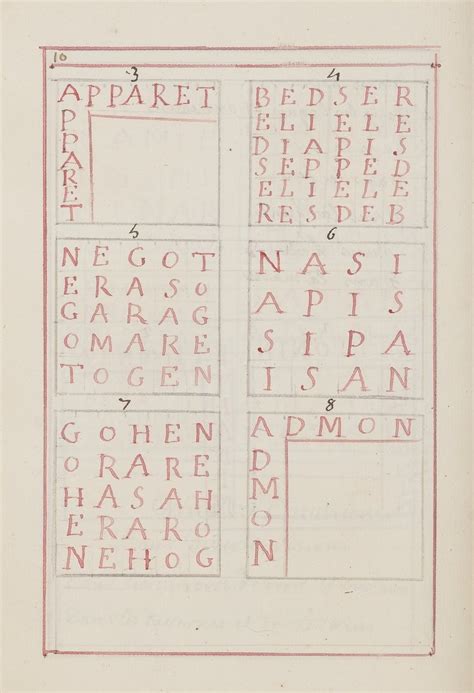 10
3
A P P A R E T
P
P
A
R
E
T
4
B E D S E R
E L I E L E
D I A P I S
S E P P E D
E L I E L E
R E S D E B
5
N E G O T
E R A S O
G A R A G
O M A R E
T O G E N
6
N A S I
A P I S
S I P A
I S A N
7
G O H E N
O R A R E
H A S A H
E R A R O
N E H O G
8
A D M O N
D
M
O
N